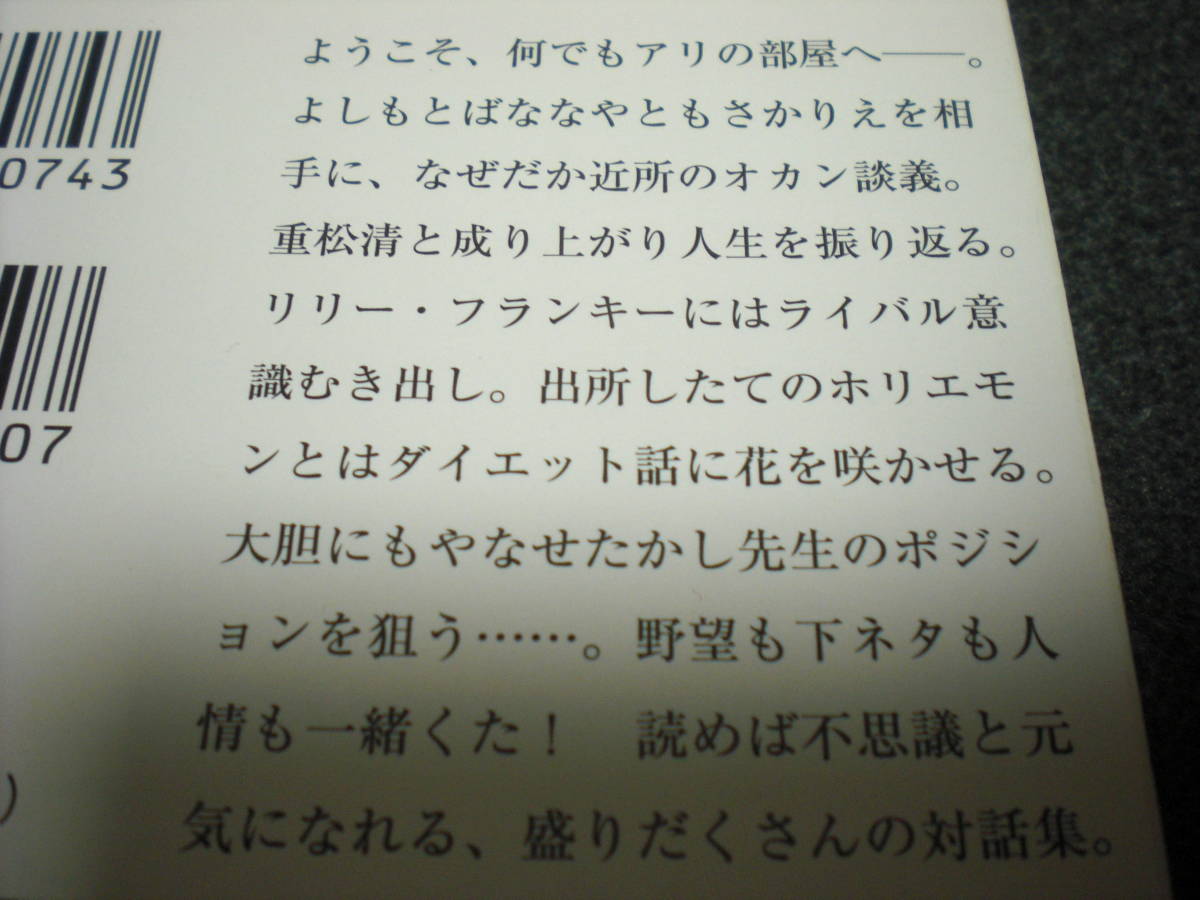 ようこそ、何でもアリの部屋へ――。
よしもとばななやともさかりえを相
手に、なぜだか近所のオカン談義。
重松清と成り上がり人生を振り返る。
リリー・フランキーにはライバル意
識むき出し。出所したてのホリエモ
ンとはダイエット話に花を咲かせる。
大胆にもやなせたかし先生のポジシ
ョンを狙う……。野望も下ネタも人
情も一緒くた！　読めば不思議と元
気になれる、盛りだくさんの対話集。
0743
07
)